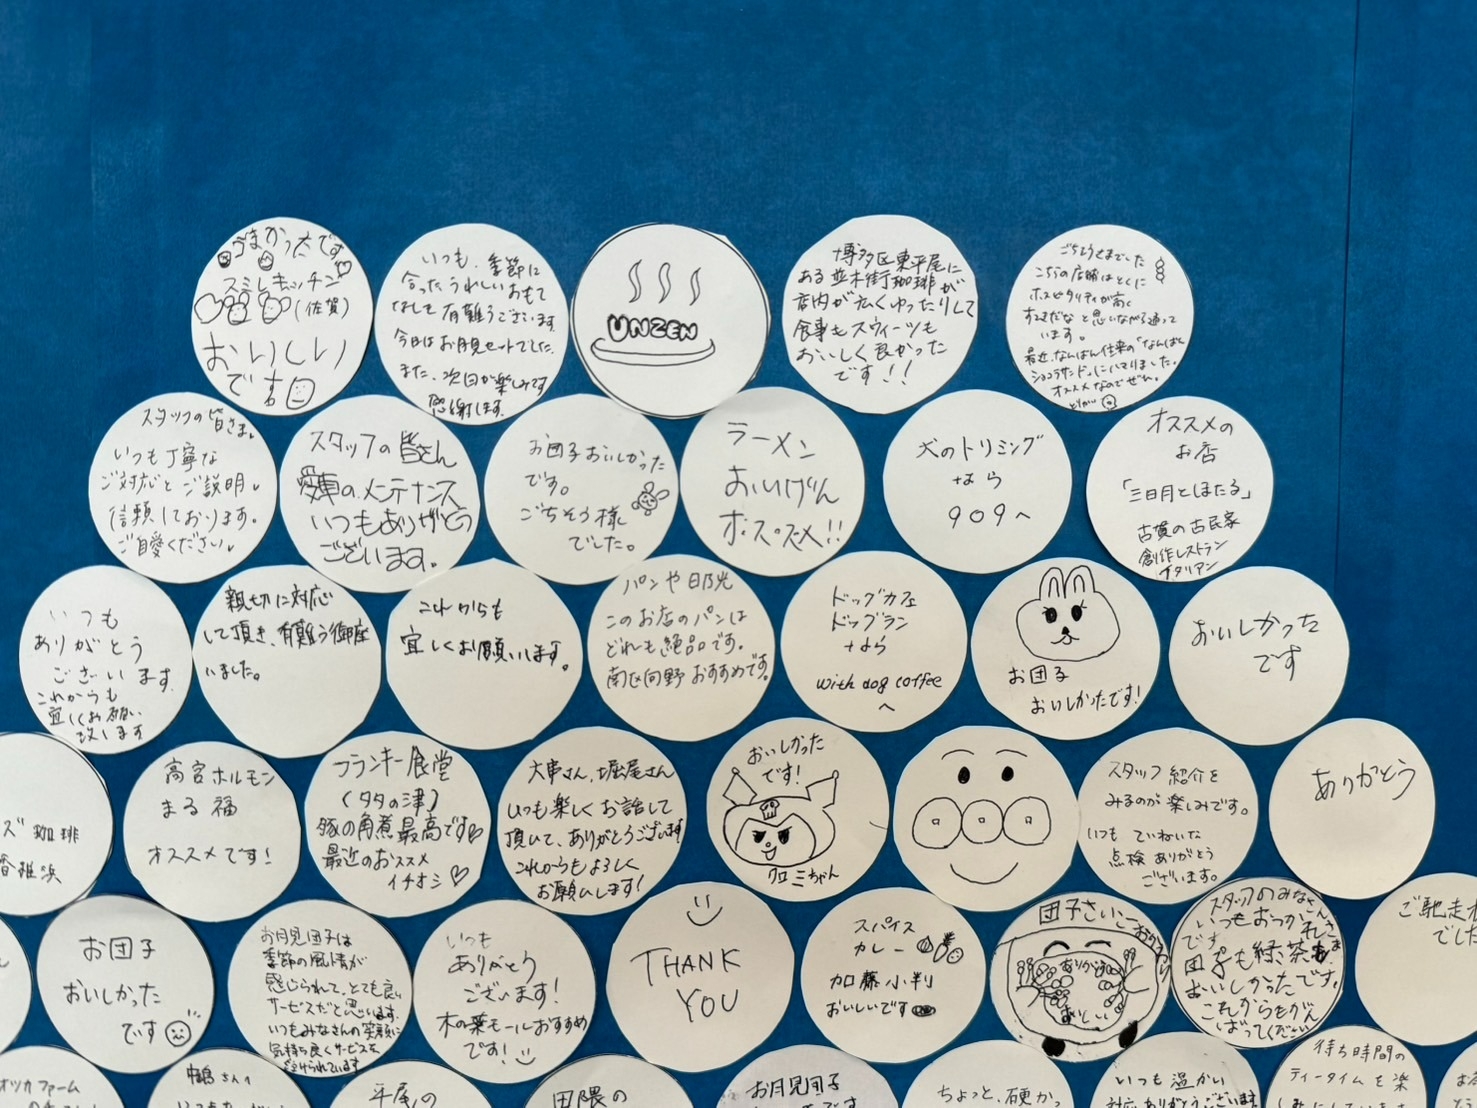 うまかっ太です
スミレキッチン
(佐賀)
おいしい
です
いつも、季節に
合ったうれしいおもて
なしを有難うございます
今日はお月見セットでした。
また、次回が楽しみです
感謝します。
UNZEN
博多区東平尾に
ある並木街珈琲が
店内が広くゆったりして
食事もスウィーツも
おいしく良かった
です!!
ごちそうさまでした
こちらの店舗はとくに
ホスピタリティが高く
すてきだなと思いながら通って
います。
最近、なんばん往来の「なんばん
ショコラサンド」にハマりました。
オススメなのでぜひ。
スタッフの皆さま。
いつも丁寧な
ご対応とご説明。
信頼しております。
ご自愛ください。
スタッフの皆さん
愛車のメンテナンス
いつもありがとう
ございます。
お団子おいしかった
です。
ごちそう様
でした。
ラーメン
おいげん
オススメ!!
犬のトリミング
なら
909へ
オススメの
お店
「三日月とほたる」
古賀の古民家
創作レストラン
イタリアン
いつも
ありがとう
ございます
これからも
宜しくお願い
致します
親切に対応
して頂き、有難う御座
いました。
これからも
宜しくお願いします。
パンや日乃光
このお店のパンは
どれも絶品です。
南区向野おすすめです。
ドッグカフェ
ドッグラン
なら
with dog coffee
へ
お団子
おいしかったです!
おいしかった
です
ズ珈琲
香椎浜
高宮ホルモン
まる福
オススメです!
フランキー食堂
(多の津)
豚の角煮最高です♡
最近のおススメ
イチオシ♡
大串さん、堀尾さん
いつも楽しくお話して
頂いて、ありがとうございます
これからもよろしく
お願いします!
おいしかった
です!
クロミちゃん
スタッフ紹介を
みるのが楽しみです。
いつもていねいな
点検ありがとう
ございます。
ありがとう
お団子
おいしかった
です
お月見団子は
季節の風情が
感じられて、とても良い
サービスだと思います。
いつもみなさんの笑顔に
気持ち良くサービスを
受けられています
いつも
ありがとう
ございます!
木の葉モールおすすめ
です!
THANK
YOU
スパイス
カレー
加藤小判
おいしいです
団子さいこう
ありがとう
おいしい
スタッフのみなさん
いつもおつかれさま
です。
団子も緑茶も
おいしかったです。
これからもがん
ばってください
ご馳走さ
でした
オツカファーム
鶴さん
平尾の
田隈の
お月見団子
ちょっと、硬かっ
いつも温かい
対応ありがとうございます
待ち時間の
ティータイムを楽
しみにしています